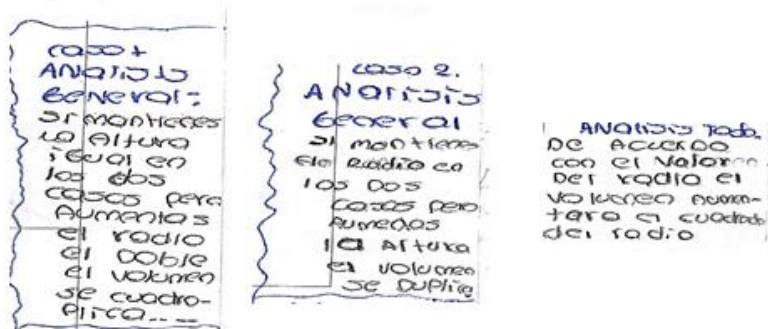 caso 1
ANALISIS
General:
Si mantienes
la Altura
igual en
los dos
casos pero
Aumentas
el radio
el Doble
el volumen
se cuadro-
Plica....
caso 2.
ANALISIS
General
si mantienes
el Radio en
los Dos
casos pero
Aumentas
la Altura
el volumen
se Duplica
ANALISIS Todo.
De Acuerdo
con el valor
Del radio el
volumen Aumen-
tara al cuadrado
del radio